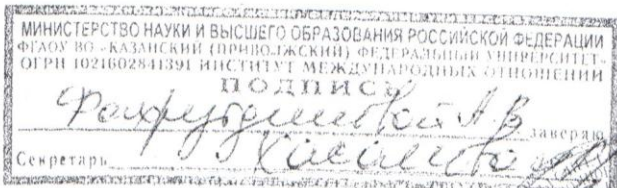 МИНИСТЕРСТВО НАУКИ И ВЫСШЕГО ОБРАЗОВАНИЯ РОССИЙСКОЙ ФЕДЕРАЦИИ
ФГАОУ ВО «КАЗАНСКИЙ (ПРИВОЛЖСКИЙ) ФЕДЕРАЛЬНЫЙ УНИВЕРСИТЕТ»
ОГРН 1021602841391 ИНСТИТУТ МЕЖДУНАРОДНЫХ ОТНОШЕНИЙ
ПОДПИСЬ
Фахрутдиновой А.В. заверяю
Секретарь